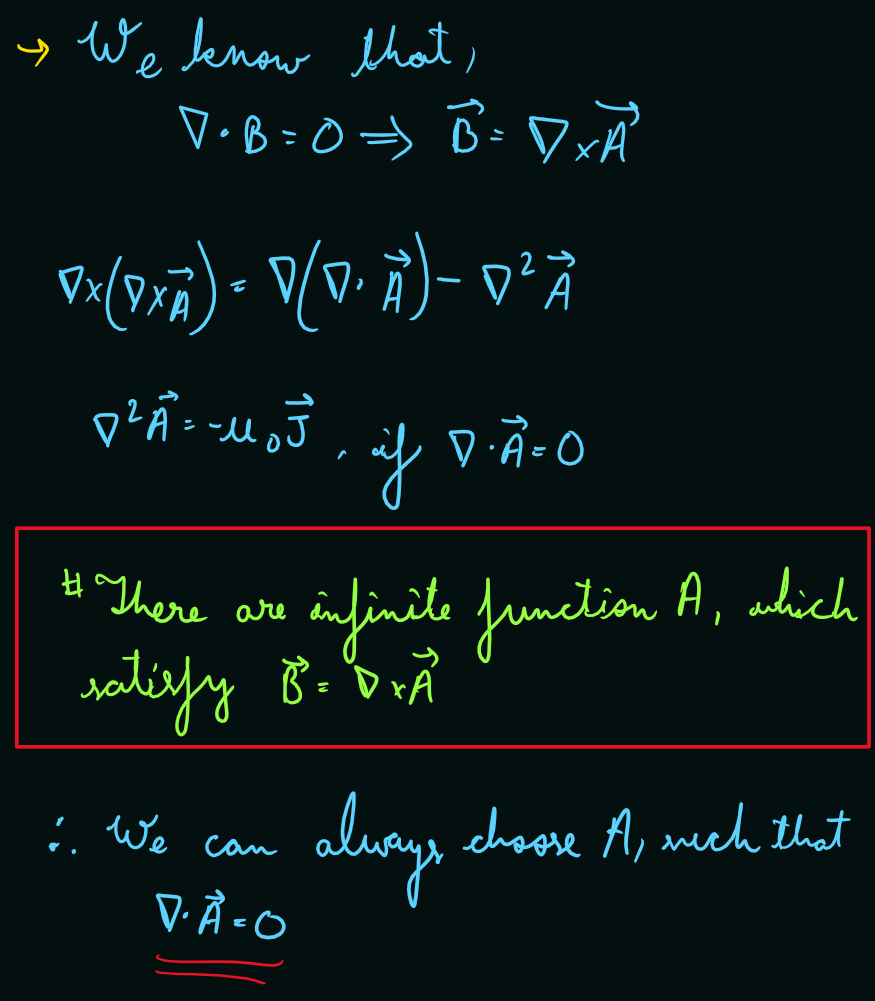 → We know that,
∇·B = 0 ⟹ B⃗ = ∇×A⃗
∇×(∇×A⃗) = ∇(∇·A⃗) - ∇²A⃗
∇²A⃗ = -μ₀J⃗, if ∇·A⃗ = 0
# There are infinite function A, which
satisfy B⃗ = ∇×A⃗
∴ We can always choose A, such that
∇·A⃗ = 0